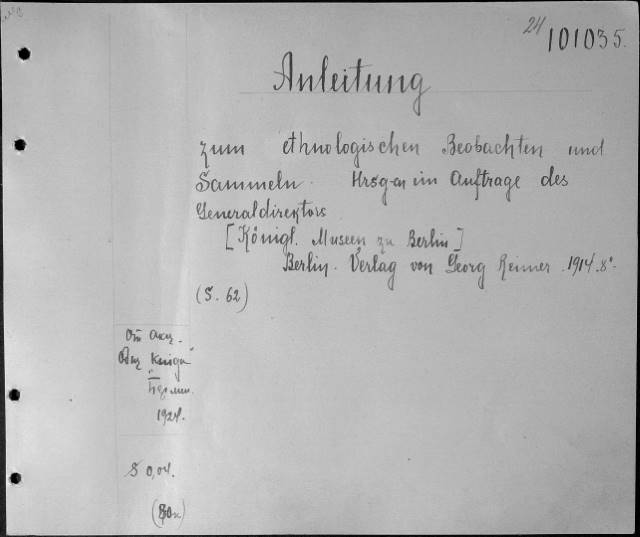 24
101035.
Anleitung
zum ethnologischen Beobachten und
Sammeln. Hrsg-en im Auftrage des
Generaldirektors
[Königl. Museen zu Berlin]
Berlin. Verlag von Georg Reimer. 1914. 8°.
(S. 62)
От Акц.
Книга"
1924.
$ 0,04.